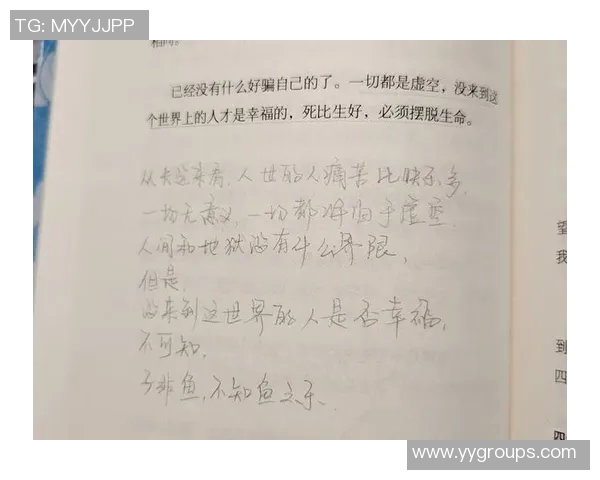 TG: MYYJJPP
相同。
已经没有什么好骗自己的了。一切都是虚空，没来到这
个世界上的人才是幸福的，死比生好，必须摆脱生命。
从长远来看，人世的人痛苦比快乐多，
一切无意义，一切都将归于虚空
人间和地狱没有什么界限，
但是，
没来到这世界的人是否幸福，
不可知，
子非鱼，不知鱼之乐、
望
我
到
四
四
www.yygroups.com